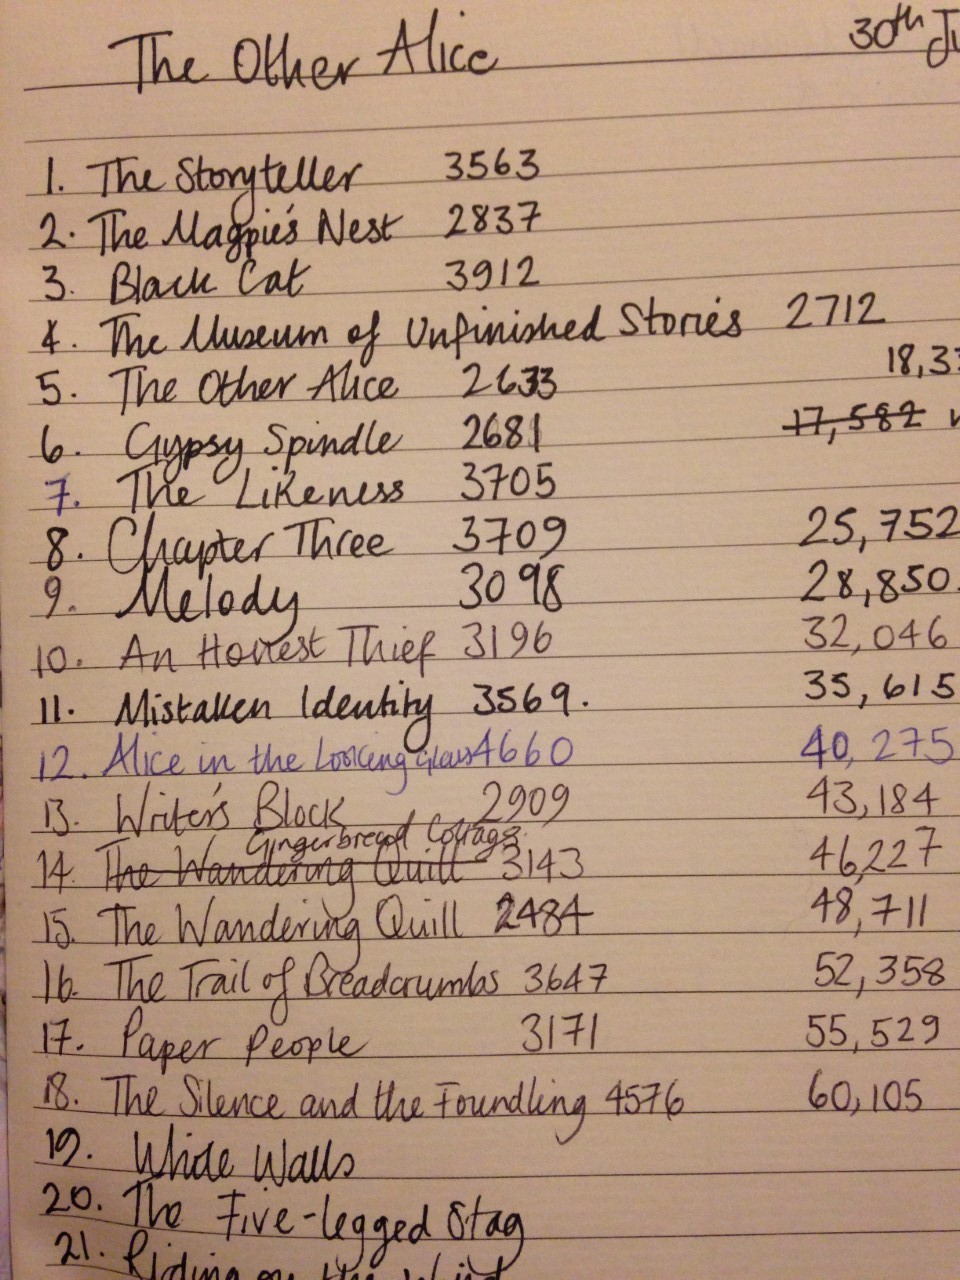 The Other Alice 30th
1. The Storyteller 3563
2. The Magpie's Nest 2837
3. Black Cat 3912
4. The Museum of Unfinished Stories 2712
5. The Other Alice 2633 18,33
6. Gypsy Spindle 2681 17,582
7. The Likeness 3705
8. Chapter Three 3709 25,752
9. Melody 3098 28,850.
10. An Honest Thief 3196 32,046
11. Mistaken Identity 3569. 35,615
12. Alice in the Looking Glass 4660 40,275
13. Writer's Block 2909 43,184
Gingerbread Cottage
14. The Wandering Quill 3143 46,227
15. The Wandering Quill 2484 48,711
16. The Trail of Breadcrumbs 3647 52,358
17. Paper People 3171 55,529
18. The Silence and the Foundling 4576 60,105
19. White Walls
20. The Five-legged Stag
21. Riding on the Wind